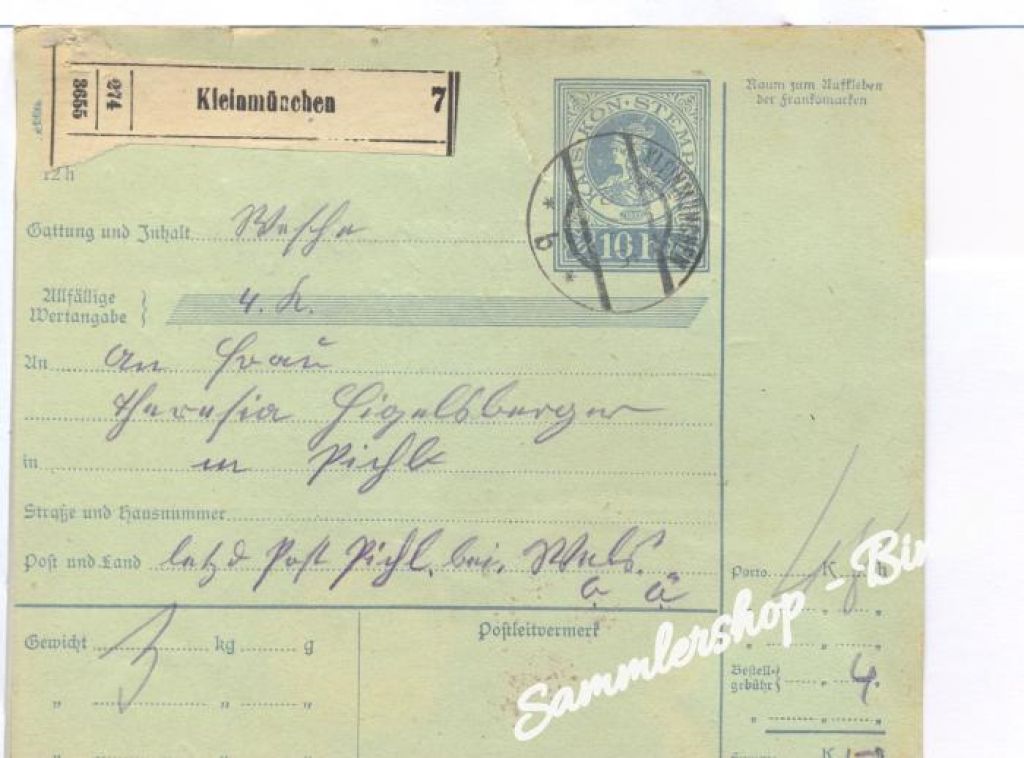 3655
274
Kleinmünchen
7
12 h
KAIS. KÖN. STEMP
10 H
KLEINMÜNCHEN
* b *
Raum zum Aufkleben
der Frankomarken
Gattung und Inhalt Wesche
Allfällige
Wertangabe
4. K.
An An Frau
Theresia Higelsberger
in in Pichl
Straße und Hausnummer
Post und Land letzd Post Pichl. bei. Wels.
Porto K h
Gewicht 3 kg g
Postleitvermerk
Bestell-
gebühr 4.
K
Sammlershop - Bir